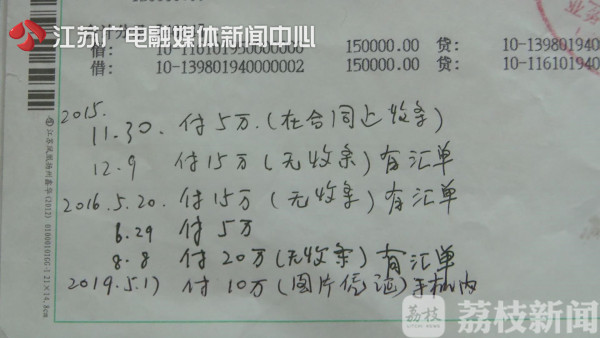 江苏广电融媒体新闻中心
10-116101950000000 150000.00 贷: 10-139801940
借: 10-139801940000002 150000.00 贷: 10-116101940
2015.
11.30. 付5万.(在合同上收条)
12.9 付15万(无收条)有汇单
2016.5.20. 付15万(无收条)有汇单
6.29 付5万
8.8 付20万(无收条)有汇单
2019.5.17 付10万(图片凭证)手机内
荔枝
荔枝新闻